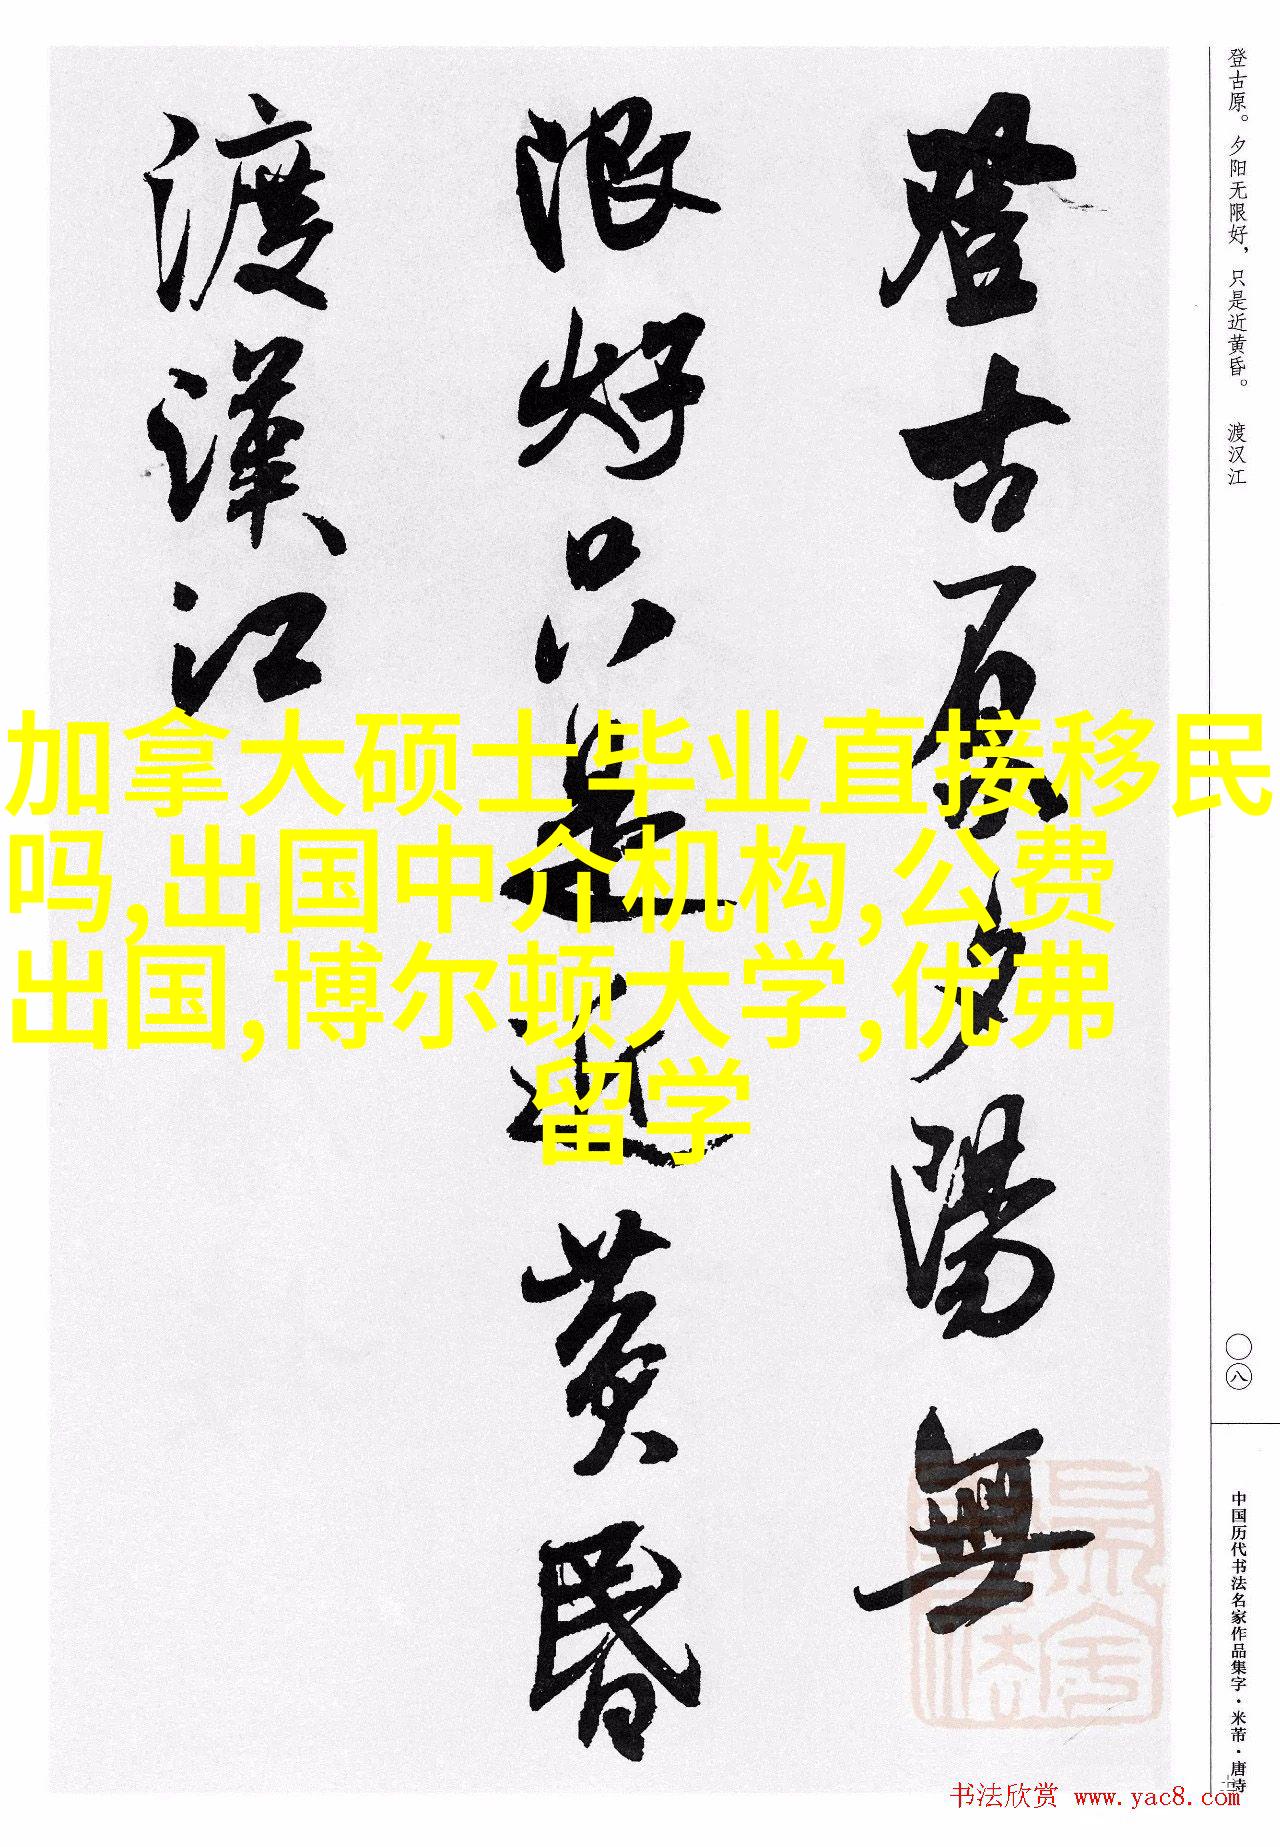 登古原夕陽無
限好只是近黄昏
渡漢江
登古原。夕阳无限好，只是近黄昏。 渡汉江
〇八
中国历代书法名家作品集字·米芾·唐诗
加拿大硕士毕业直接移民
吗,出国中介机构,公费
出国,博尔顿大学,优弗
留学
书法欣赏 www.yac8.com